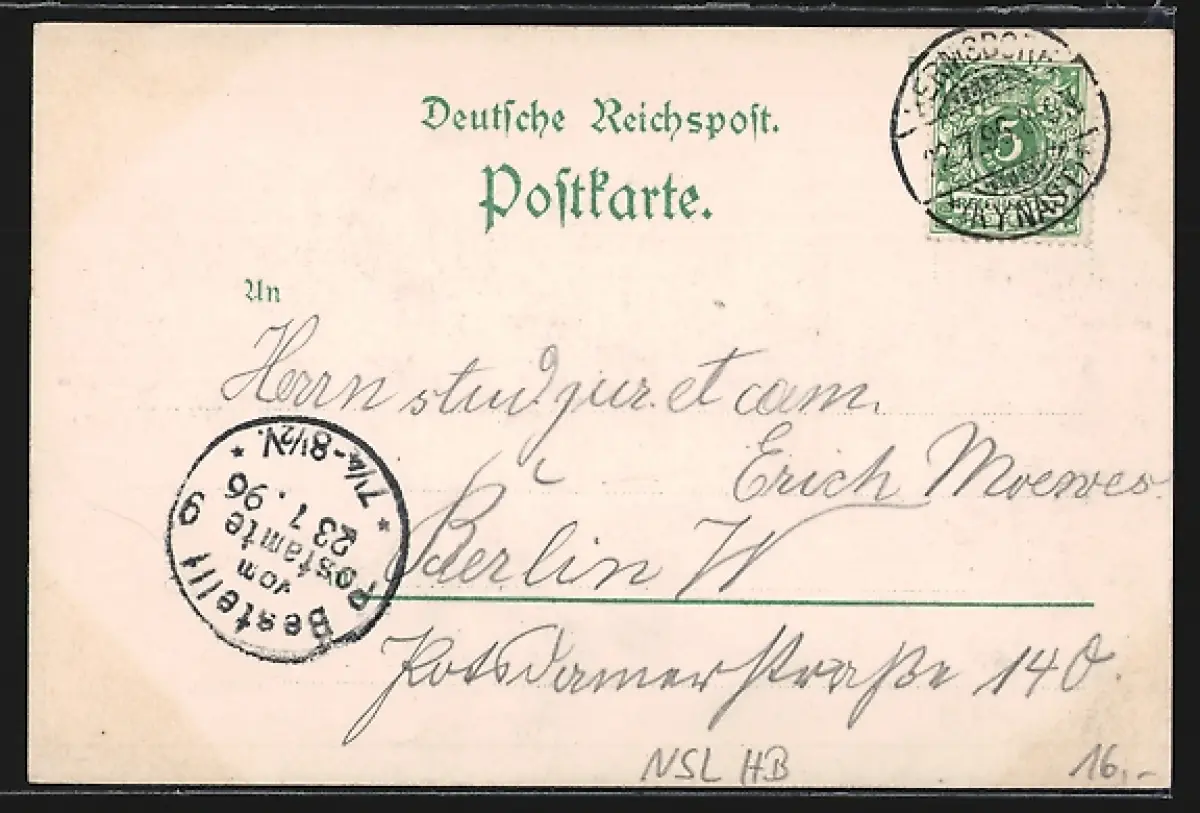 Deutsche Reichspost.
Postkarte.
5
22.7.96
(KYNAST)
An
Herrn stud jur. et cam.
Erich Moewes
Berlin W
Potsdamerstraße 140
Bestellt
vom
Postamte 9
23 7. 96
* 7¼-8½V. *
NSL HB
16,-